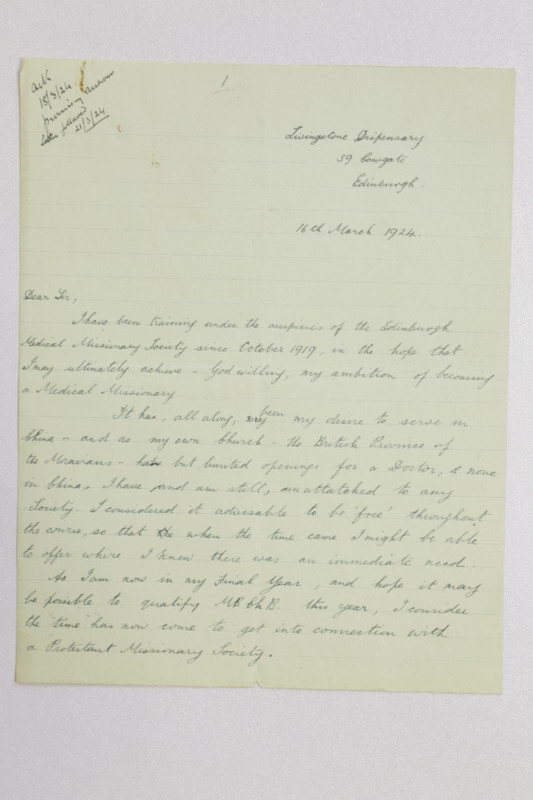 Ack
18/3/24
21/3/24
1
Livingstone Dispensary
39 Cowgate
Edinburgh.
16th March 1924.
Dear Sir,
I have been training under the auspices of the Edinburgh
Medical Missionary Society since October 1919, in the hope that
I may ultimately achieve - God willing, my ambition of becoming
a Medical Missionary
It has, all along, been my desire to serve in
China - and as my own Church - the British Province of
the Moravians - has but limited openings for a Doctor, & none
in China, I have, and am still, unattatched to any
Society. I considered it advisable to be 'free' throughout
the course, so that when the time came I might be able
to offer where I knew there was an immediate need.
As I am now in my Final Year, and hope it may
be possible to qualify M.B. Ch.B. this year, I consider
the 'time' has now come to get into connection with
a Protestant Missionary Society.